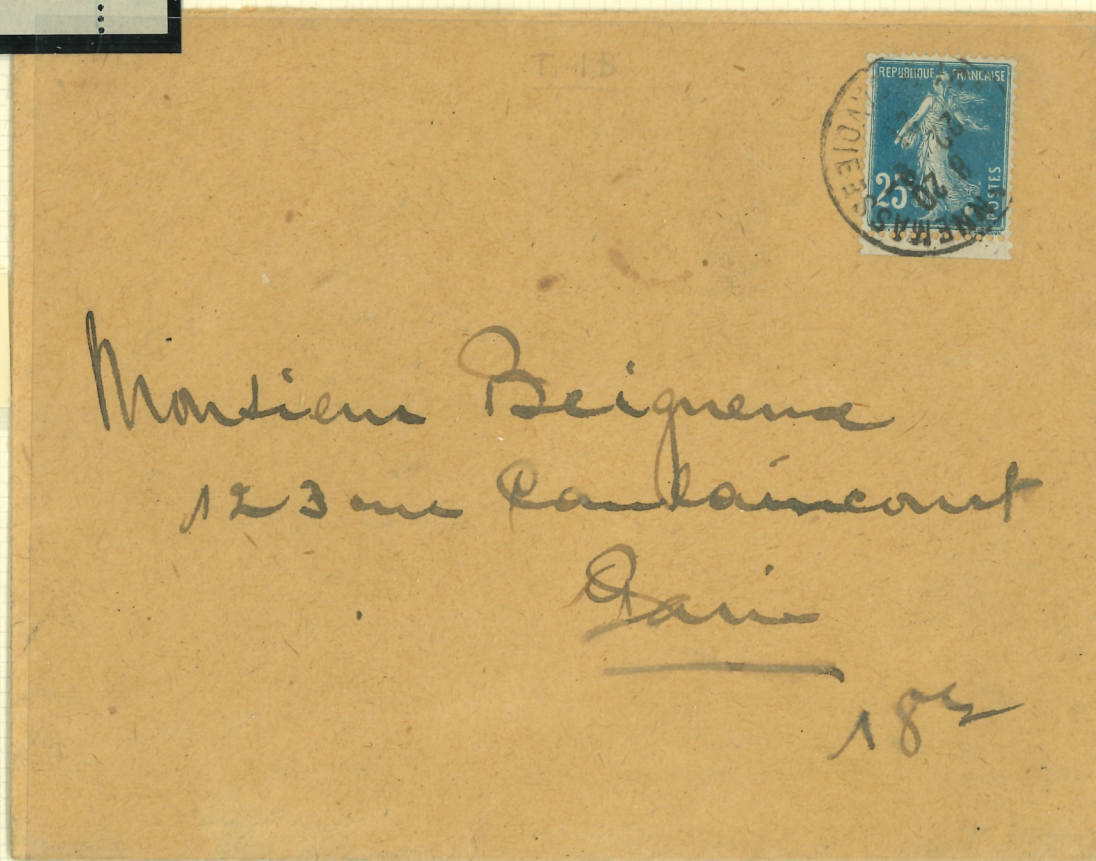 T IB
REPUBLIQUE FRANCAISE
25c
POSTES
Monsieur Beigneux
123 rue Caulaincourt
Paris
18e